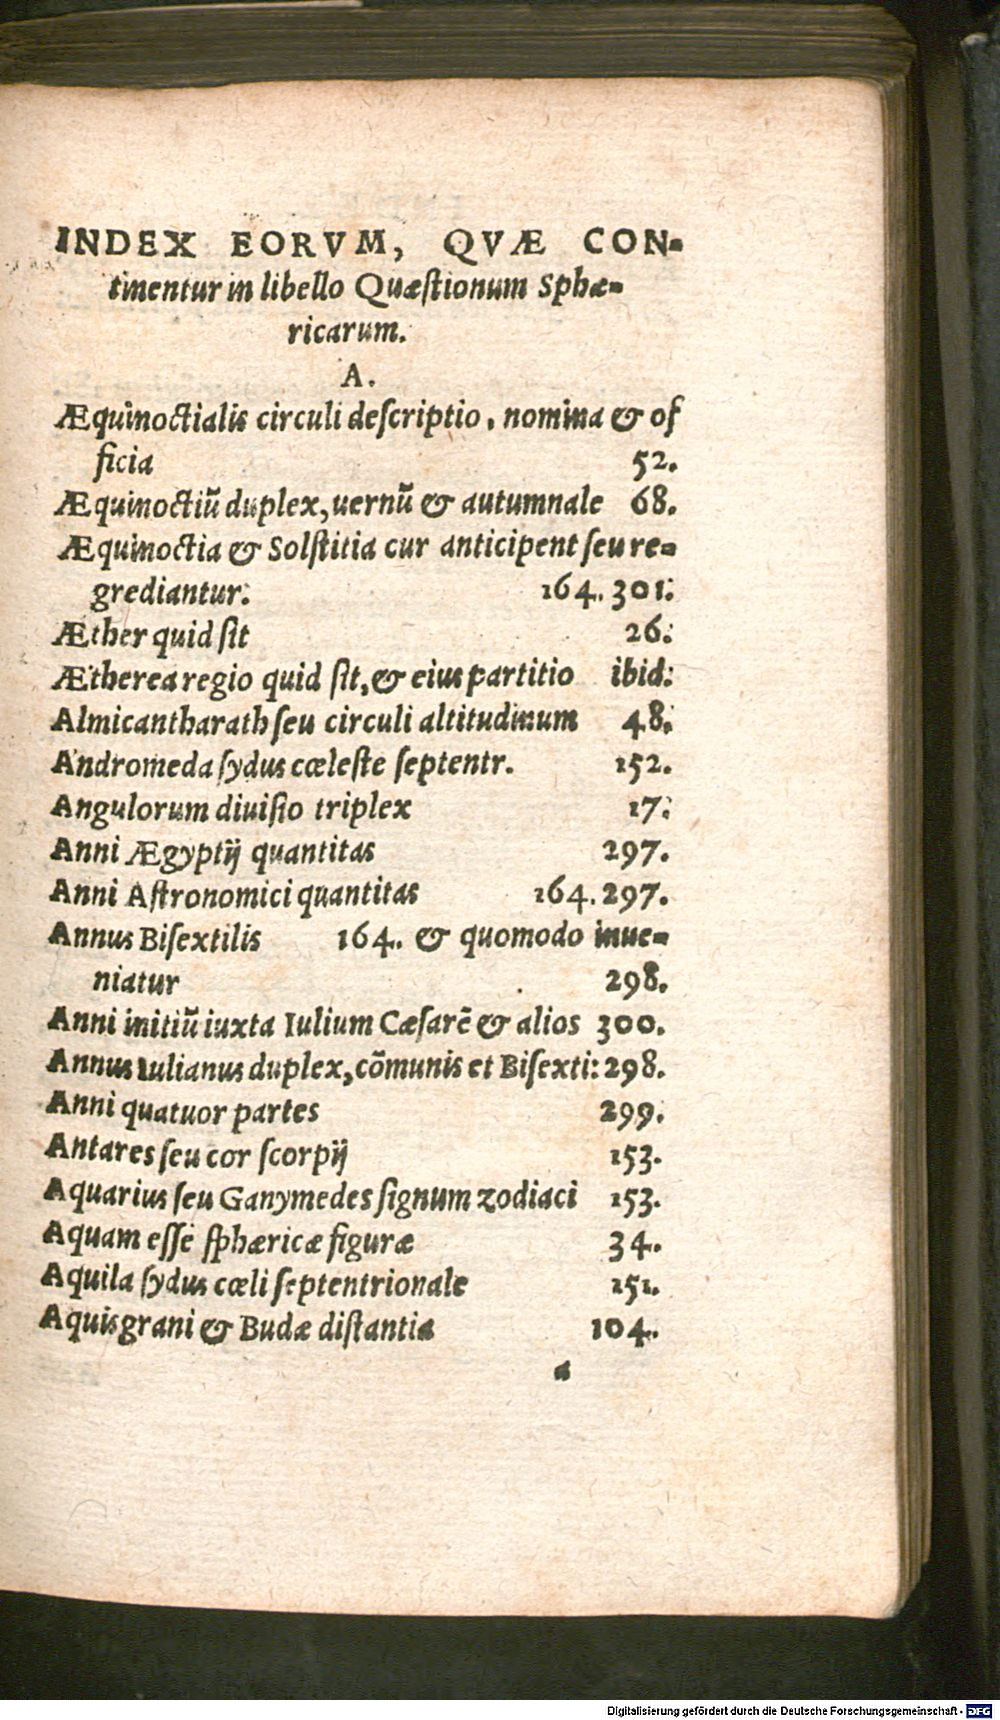 INDEX EORVM, QVÆ CON-
tinentur in libello Quæſtionum Sphæ-
ricarum.
A.
Æquinoctialis circuli deſcriptio, nomina & of
ficia 52.
Æquinoctiū duplex, uernū & autumnale 68.
Æquinoctia & Solſtitia cur anticipent ſeu re-
grediantur: 164. 301:
Æther quid ſit 26:
Ætherea regio quid ſit, & eius partitio ibid:
Almicantharath ſeu circuli altitudinum 48:
Andromeda ſydus cœleſte ſeptentr. 152.
Angulorum diuiſio triplex 17:
Anni Ægyptij quantitas 297.
Anni Aſtronomici quantitas 164. 297.
Annus Biſextilis 164. & quomodo inue-
niatur 298.
Anni initiū iuxta Iulium Cæſarē & alios 300.
Annus Iulianus duplex, cōmunis et Biſexti: 298.
Anni quatuor partes 299.
Antares ſeu cor ſcorpij 153.
Aquarius ſeu Ganymedes ſignum zodiaci 153.
Aquam eſſe ſphæricæ figuræ 34.
Aquila ſydus cœli ſeptentrionale 151.
Aquisgrani & Budæ diſtantia 104.
a
Digitalisierung gefördert durch die Deutsche Forschungsgemeinschaft - DFG